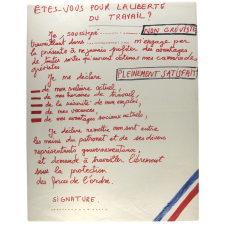 ÊTES-VOUS POUR LA LIBERTÉ
DU TRAVAIL ?
Je, soussigné NON GRÉVISTE
travaillant dans m'engage par
la présente à ne jamais profiter des avantages
de toutes sortes qu'auront obtenus mes camarades
grévistes
Je me déclare PLEINEMENT SATISFAIT
de mon salaire actuel,
de mes horaires de travail,
de la sécurité de mon emploi,
de mes vacances
de mes avantages sociaux actuels,
Je déclare remettre mon sort entre
les mains du patronat et de ses divers
représentants gouvernementaux,
et demande à travailler librement
sous la protection
des forces de l'ordre.
SIGNATURE.